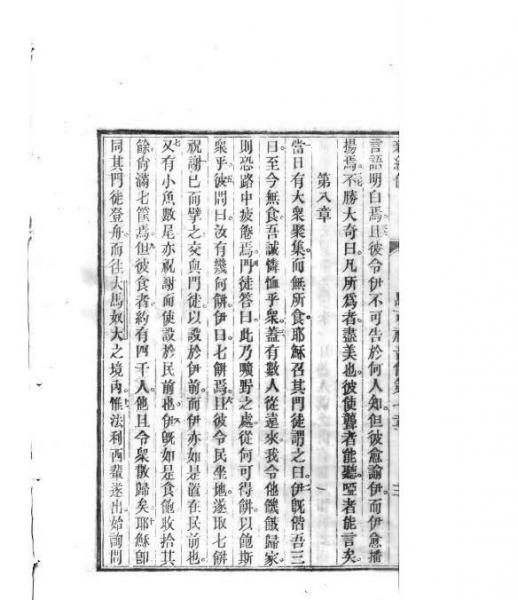 言語明白焉且彼令伊不可告於何人知但彼愈諭伊而伊愈播
揚焉不勝大奇曰凡所為者盡美也彼使聾者能聽啞者能言矣
第八章
當日有大衆聚集而無所食耶穌召其門徒謂之曰伊旣偕吾三
日至今無食吾誠憐恤乎衆蓋有數人從遠來我令他饑餓歸家
則恐路中疲憊焉門徒答曰此乃曠野之處從何可得餅以飽斯
衆乎彼問曰汝有幾何餅伊曰七餅焉且彼令民坐地遂取七餅
祝謝已而擘之交與門徒以設於伊前而伊亦如是置在民前也
又有小魚數尾亦祝謝而使設於民前也伊旣如是食飽收拾其
餘尚滿七筐焉但彼食者約有四千人他且令衆散歸矣耶穌卽
同其門徒登舟而往大馬奴大之境內惟法利西輩遂出始詢問